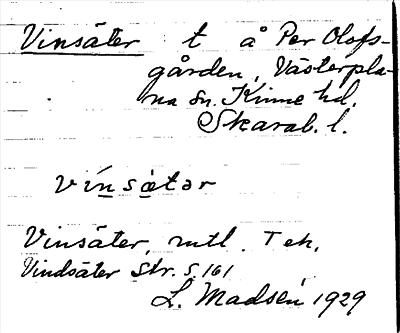 Vinsäter t å Per Olofs-
gården, Västerpla-
na sn. Kinne hd.
Skarab. l.
vínsætər
Vinsäter, mtl. Tek.
Vindsäter Str. S. 161
L. Madsén 1929